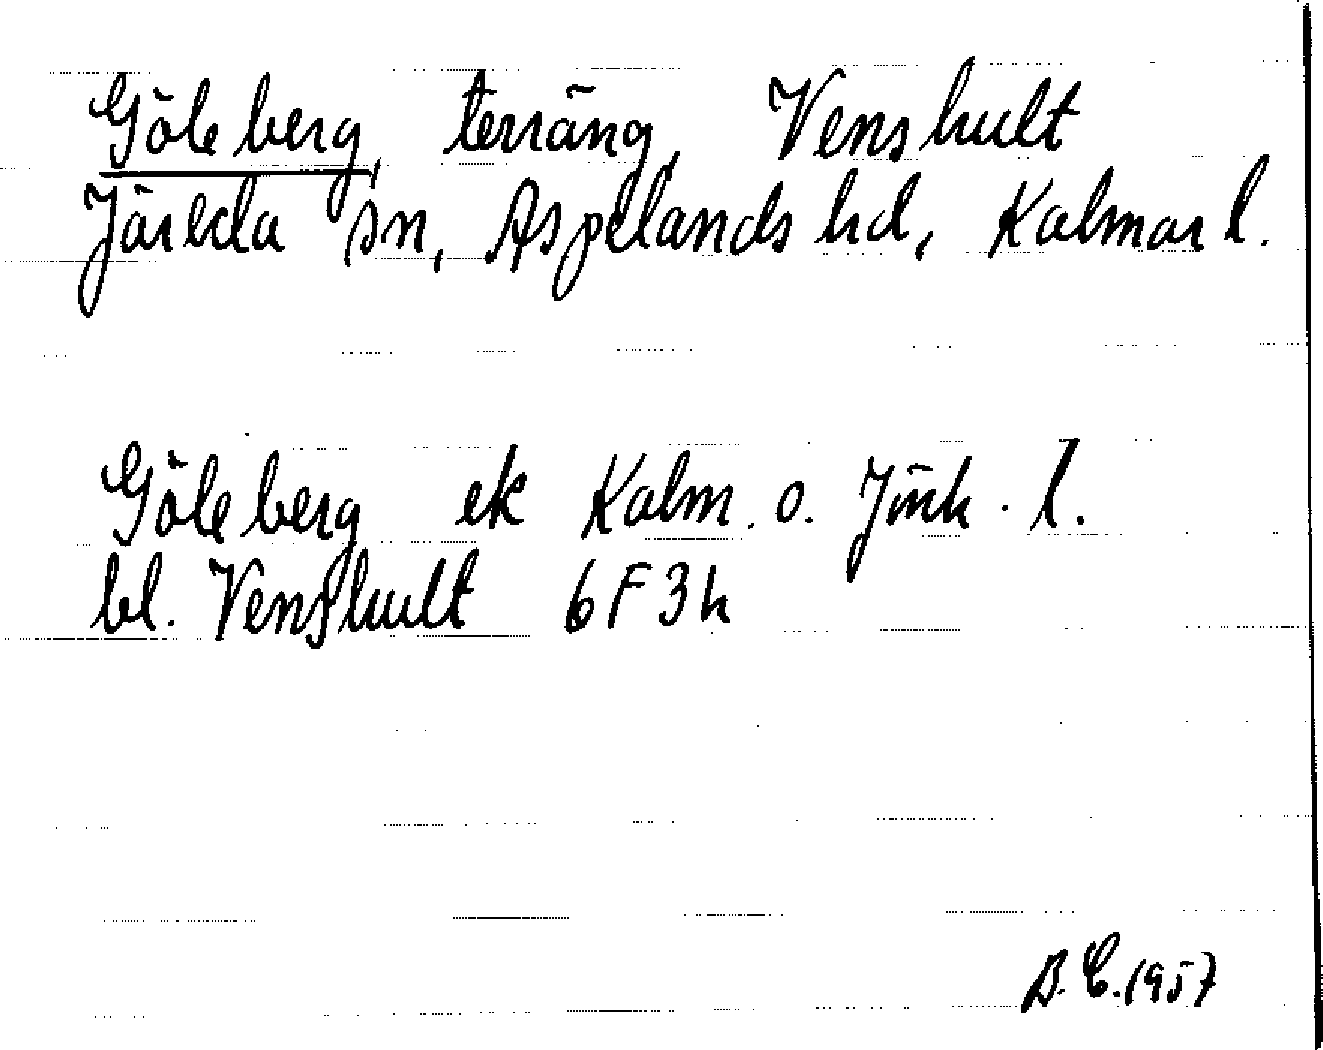 Göleberg, terräng, Venshult
Järeda sn, Aspelands hd, Kalmar l.
Göleberg ek Kalm. o. Jönk. l.
bl. Venshult 6F3h
B.E. 1957